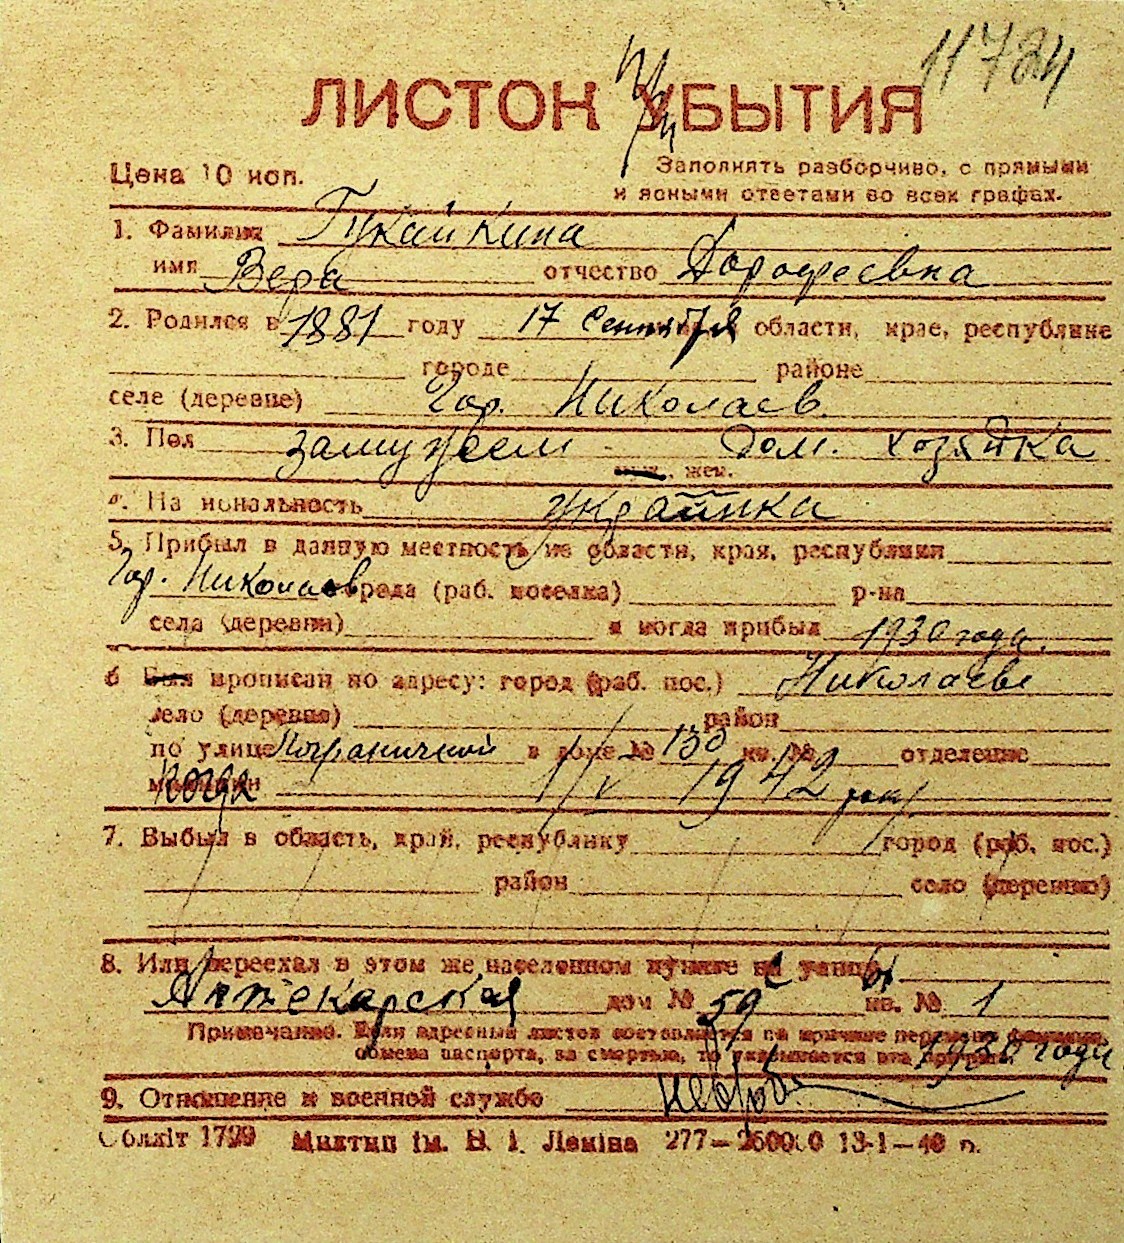 11724
ЛИСТОК УБЫТИЯ
Цена 10 коп.
Заполнять разборчиво, с прямыми
и ясными ответами во всех графах.
1. Фамилия Гукайкина
имя Вера отчество Дорофеевна
2. Родился в 1881 году 17 Сентября области, крае, республике
городе районе
селе (деревне) Гор. Николаев
3. Пол замужем Дом. хозяйка
муж., жен.
4. Национальность украинка
5. Прибыл в данную местность из области, края, республики
Гор. Николаев города (раб. поселка) р-на
села (деревни) и когда прибыл 1930 года.
6 Был прописан по адресу: город (раб. пос.) Николаеве
село (деревне) район
по улице Пограничной в доме № 130 кв. № отделение
милиции когда 1/V 1942 года
7. Выбыл в область, край, республику город (раб. пос.)
район село (деревню)
8. Или переехал в этом же населенном пункте с улицы
Аптекарская дом № 59 кв. № 1
Примечание. Если адресный листок составляется по причине перемены фамилии,
обмена паспорта, за смертью, то указывается эта причина. 1930 года
9. Отношение к военной службе
Облліт 1799 Миктип ім. В. І. Леніна 277—250000 13-1—40 р.